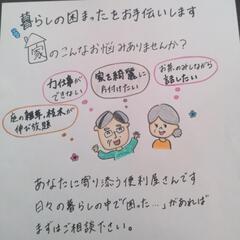 暮らしの困まったをお手伝いします
家のこんなお悩みありませんか?
力仕事が
できない
家を綺麗に
片付けたい
お茶のみしながら
話したい
庭の雑草、植木が
伸び放題
あなたに寄り添う便利屋さんです
日々の暮らしの中で"困った…"があれば
まずはご相談ください。